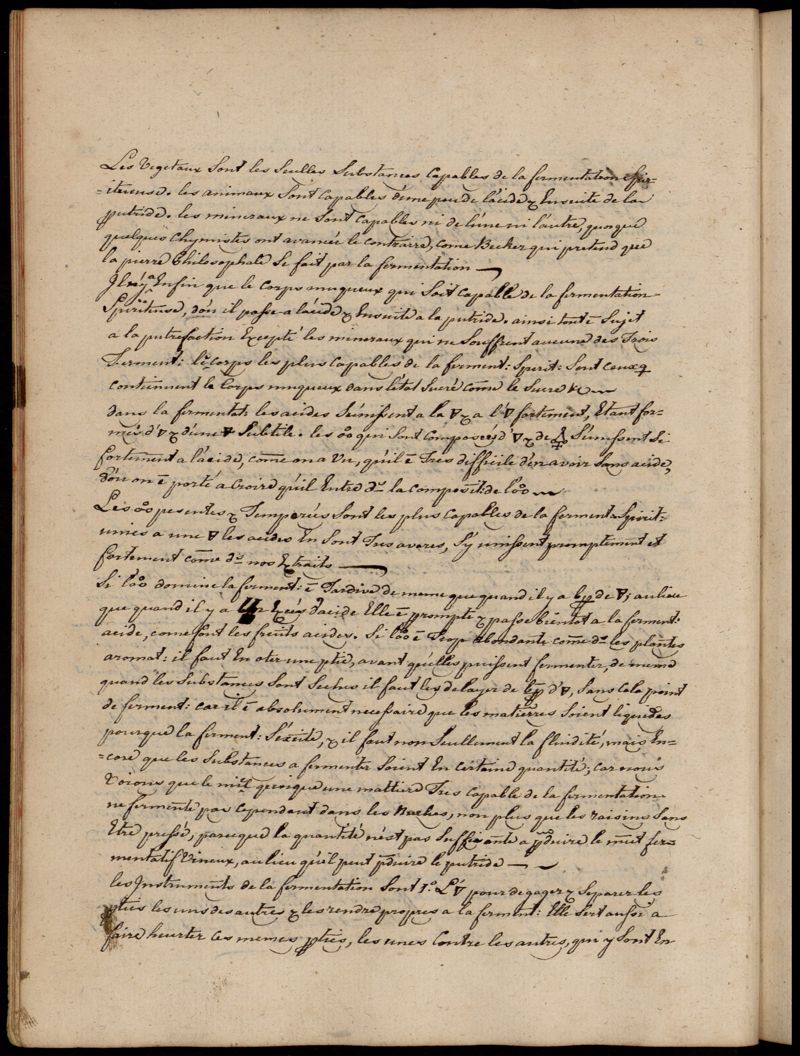 Les Vegetaux sont les seulles substances capables de la fermentation spi-
-ritueuse. les animaux sont capables d'une peu de l'acide & Ensuite de la
putride. les mineraux ne sont capables ni de l'une ni l'autre, quoque
quelques Chymistes ont avancée le contraire, come Becker qui pretend que
la pierre Philosophale se fait par la fermentation
Il n'ÿ a Enfin que le Corps muqueux qui soit capable de la fermentation
Spiriteuse, d'ou il passe a l'acide & Ensuit a la putride. ainsi tout ē sujet
a la putrefaction Excepté les mineraux qui ne souffrent aucune des Trois
Ferment: les corps les plus capables de la ferment: spirit: sont ceux q
contiennent le Corps muqueux dans l'état sucré come le sucre &c
dans la fermentat: les acides s'unissent a la 🜃 & a l'🜃 fortement, Etant for-
més d'🜄 & d'une 🜃 subtile. les o͡o qui sont composéz d'🜄 & de 🜍 s'unissent si
fortement a l'acide, come on a vu, qu'il ē Tres difficile d'en avoir sans acide,
d'ou on ē porté a croire qu'il Entre ds la composit: de l'o͡o
Les o͡o pesentes & Temperés sont les plus capables de la ferment: spirit:
unies a une 🜃 les acides En sont Tres avares, s'y unissent promptement et
fortement come ds nos Extraits
Si l'o͡o domine la ferment: ē Tardive de meme que quand il y a bp de 🜃, au lieu
que quand il y a Un Excés d'acide Elle ē prompte & passe bientot a la ferment:
acide, come font les fruits acides. Si l'o͡o ē Trop abondante come ds les plantes
aromat: il faut En oter une ptie, avant qu'elles puissent fermenter, de meme
quand les substances sont seches il faut les delayer de bp d'🜄, sans cela point
de ferment: car il ē absolument necessaire que les matierres soient liquides
pourque la ferment: s'exite, & il faut non seullement la fluidité, mais En-
-core que les substances a fermenter soient En certaine quantité, car nous
Voions que le miel quoique une mattiere Tres capable de la fermentation
ne fermente pas cependant dans les Ruches, non plus que les raisins sans
Etre pressé, parceque la quantité n'est pas suffisante a pduire le mvt fer-
mentatif Vineux, au lieu qu'il peut pduire le putride
les Instruments de la fermentation sont 1.º L'🜄 pour degager & separer les
pties les uns des autres & les rendre propres a la ferment: Elle sert aussi a
faire heurter ces memes pties, les unes contre les autres, qui y sont En